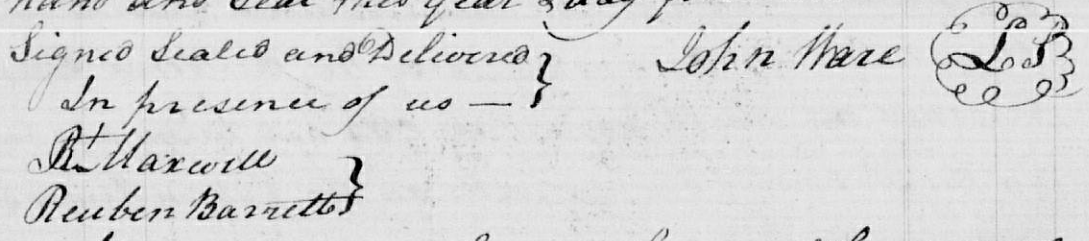 hand and Seal this year & day
Signed Sealed and Delivered } John Ware LS
In presence of us — }
Rt. Maxwell
Reuben Barrett }